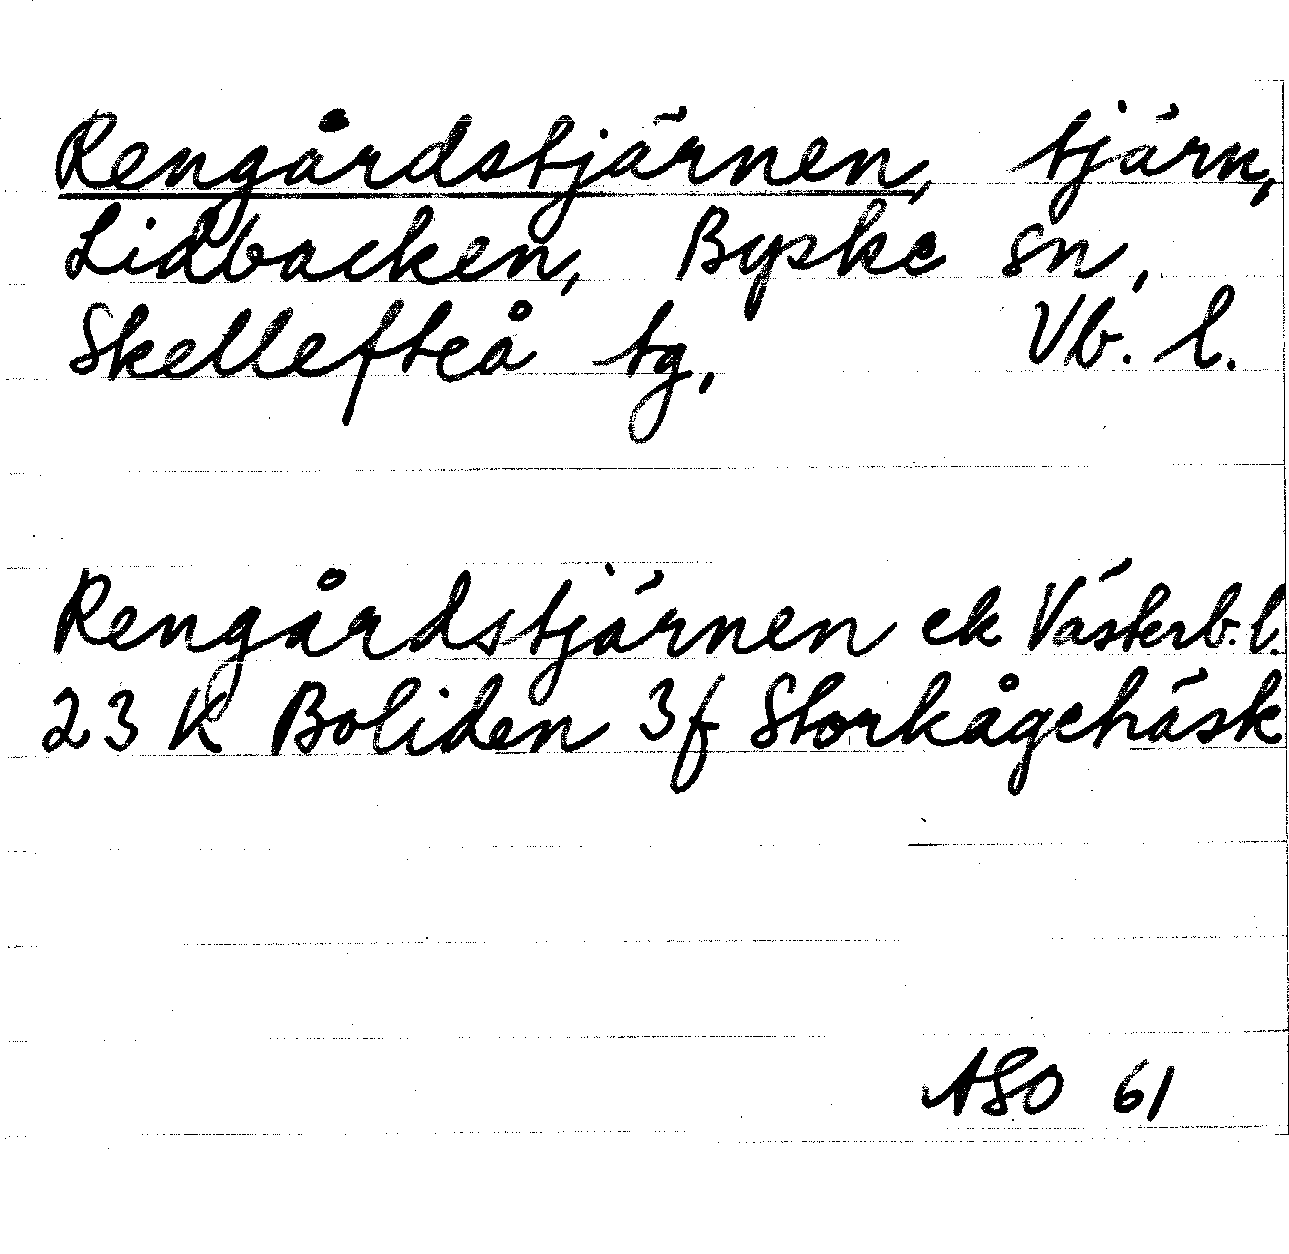 Rengårdstjärnen, tjärn,
Lidbacken, Byske sn,
Skellefteå tg, Vb. l.
Rengårdstjärnen ek Västerb. l.
23 K Boliden 3f Storkågeträsk
ASO 61